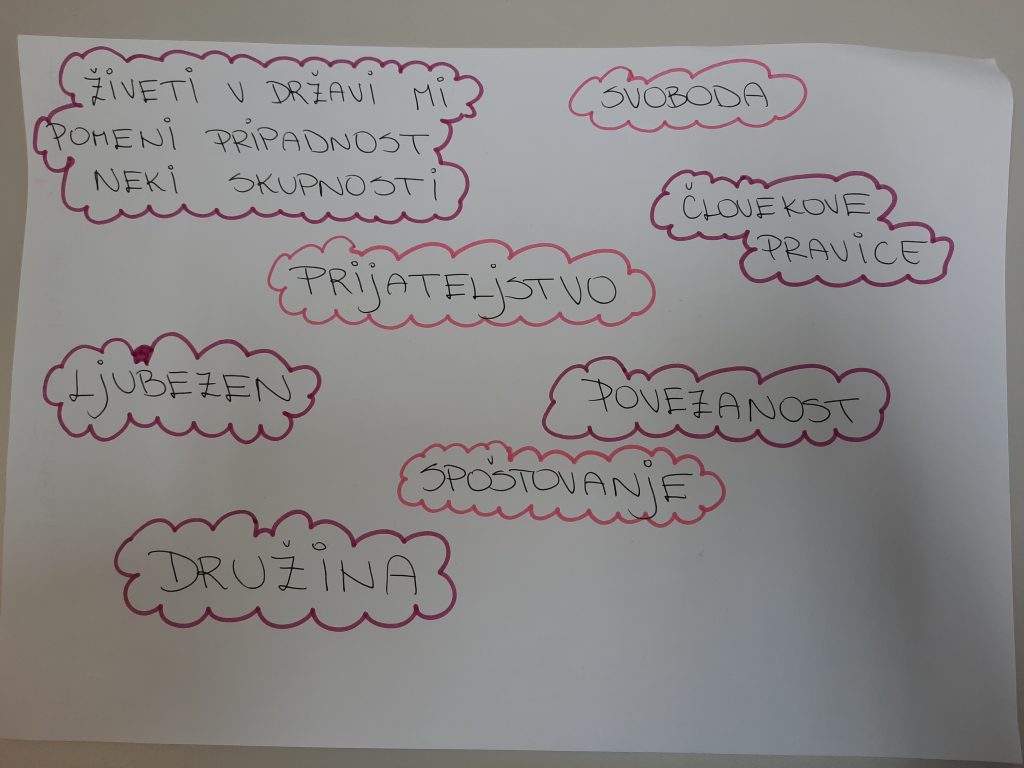 ŽIVETI V DRŽAVI MI
POMENI PRIPADNOST
NEKI SKUPNOSTI
SVOBODA
ČLOVEKOVE
PRAVICE
PRIJATELJSTVO
LJUBEZEN
POVEZANOST
SPOŠTOVANJE
DRUŽINA